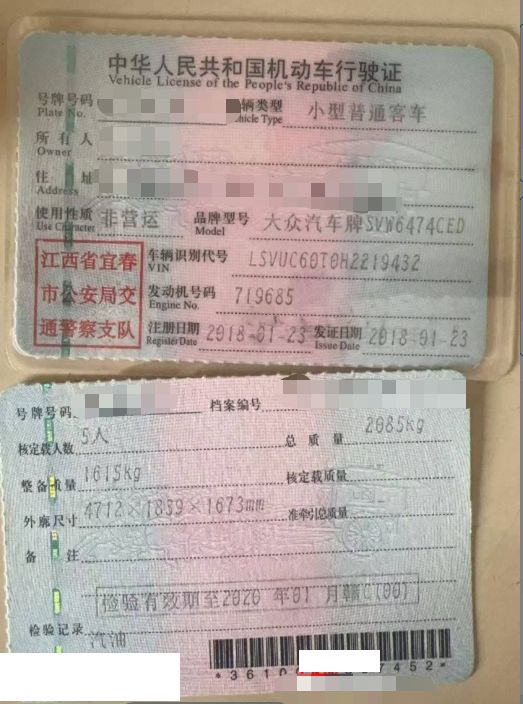 中华人民共和国机动车行驶证
Vehicle License of the People's Republic of China
号牌号码 车辆类型 小型普通客车
Plate No. Vehicle Type
所有人
Owner
住址
Address
使用性质 非营运 品牌型号 大众汽车牌SVW6474CED
Use Character Model
江西省宜春市公安局交通警察支队
车辆识别代号 LSVUC60T0H2219432
VIN
发动机号码 719685
Engine No.
注册日期 2018-01-23 发证日期 2018-01-23
Register Date Issue Date
号牌号码 档案编号
核定载人数 5人 总质量 2085kg
整备质量 1615kg 核定载质量
外廓尺寸 4712×1839×1673mm 准牵引总质量
备注
检验有效期至2020年01月赣C(00)
检验记录
汽油